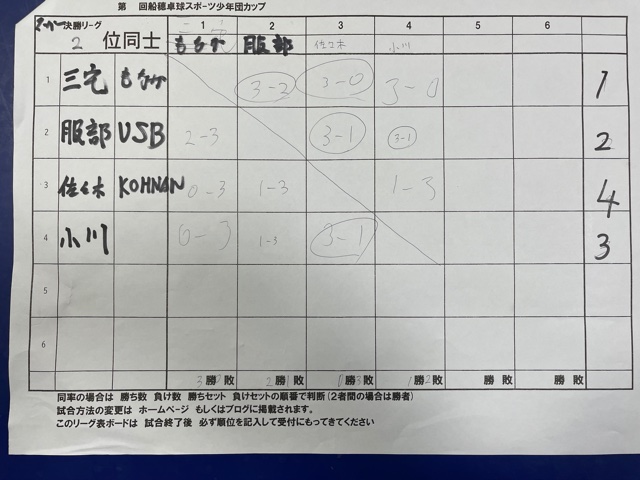 第 回船穂卓球スポーツ少年団カップ
決勝リーグ 1 2 3 4 5 6
2 位同士 服部 佐々木 小川
1 三宅 3-2 3-0 3-0 1
2 服部 USB 2-3 3-1 3-1 2
3 佐々木 KOHNAN 0-3 1-3 1-3 4
4 小川 0-3 1-3 3-1 3
5
6
3勝 敗 2勝1敗 0勝3敗 1勝2敗 勝 敗 勝 敗
同率の場合は 勝ち数 負け数 勝ちセット 負けセットの順番で判断(2者間の場合は勝者)
試合方法の変更は ホームページ もしくはブログに掲載されます。
このリーグ表ボードは 試合終了後 必ず順位を記入して受付にもってきてください